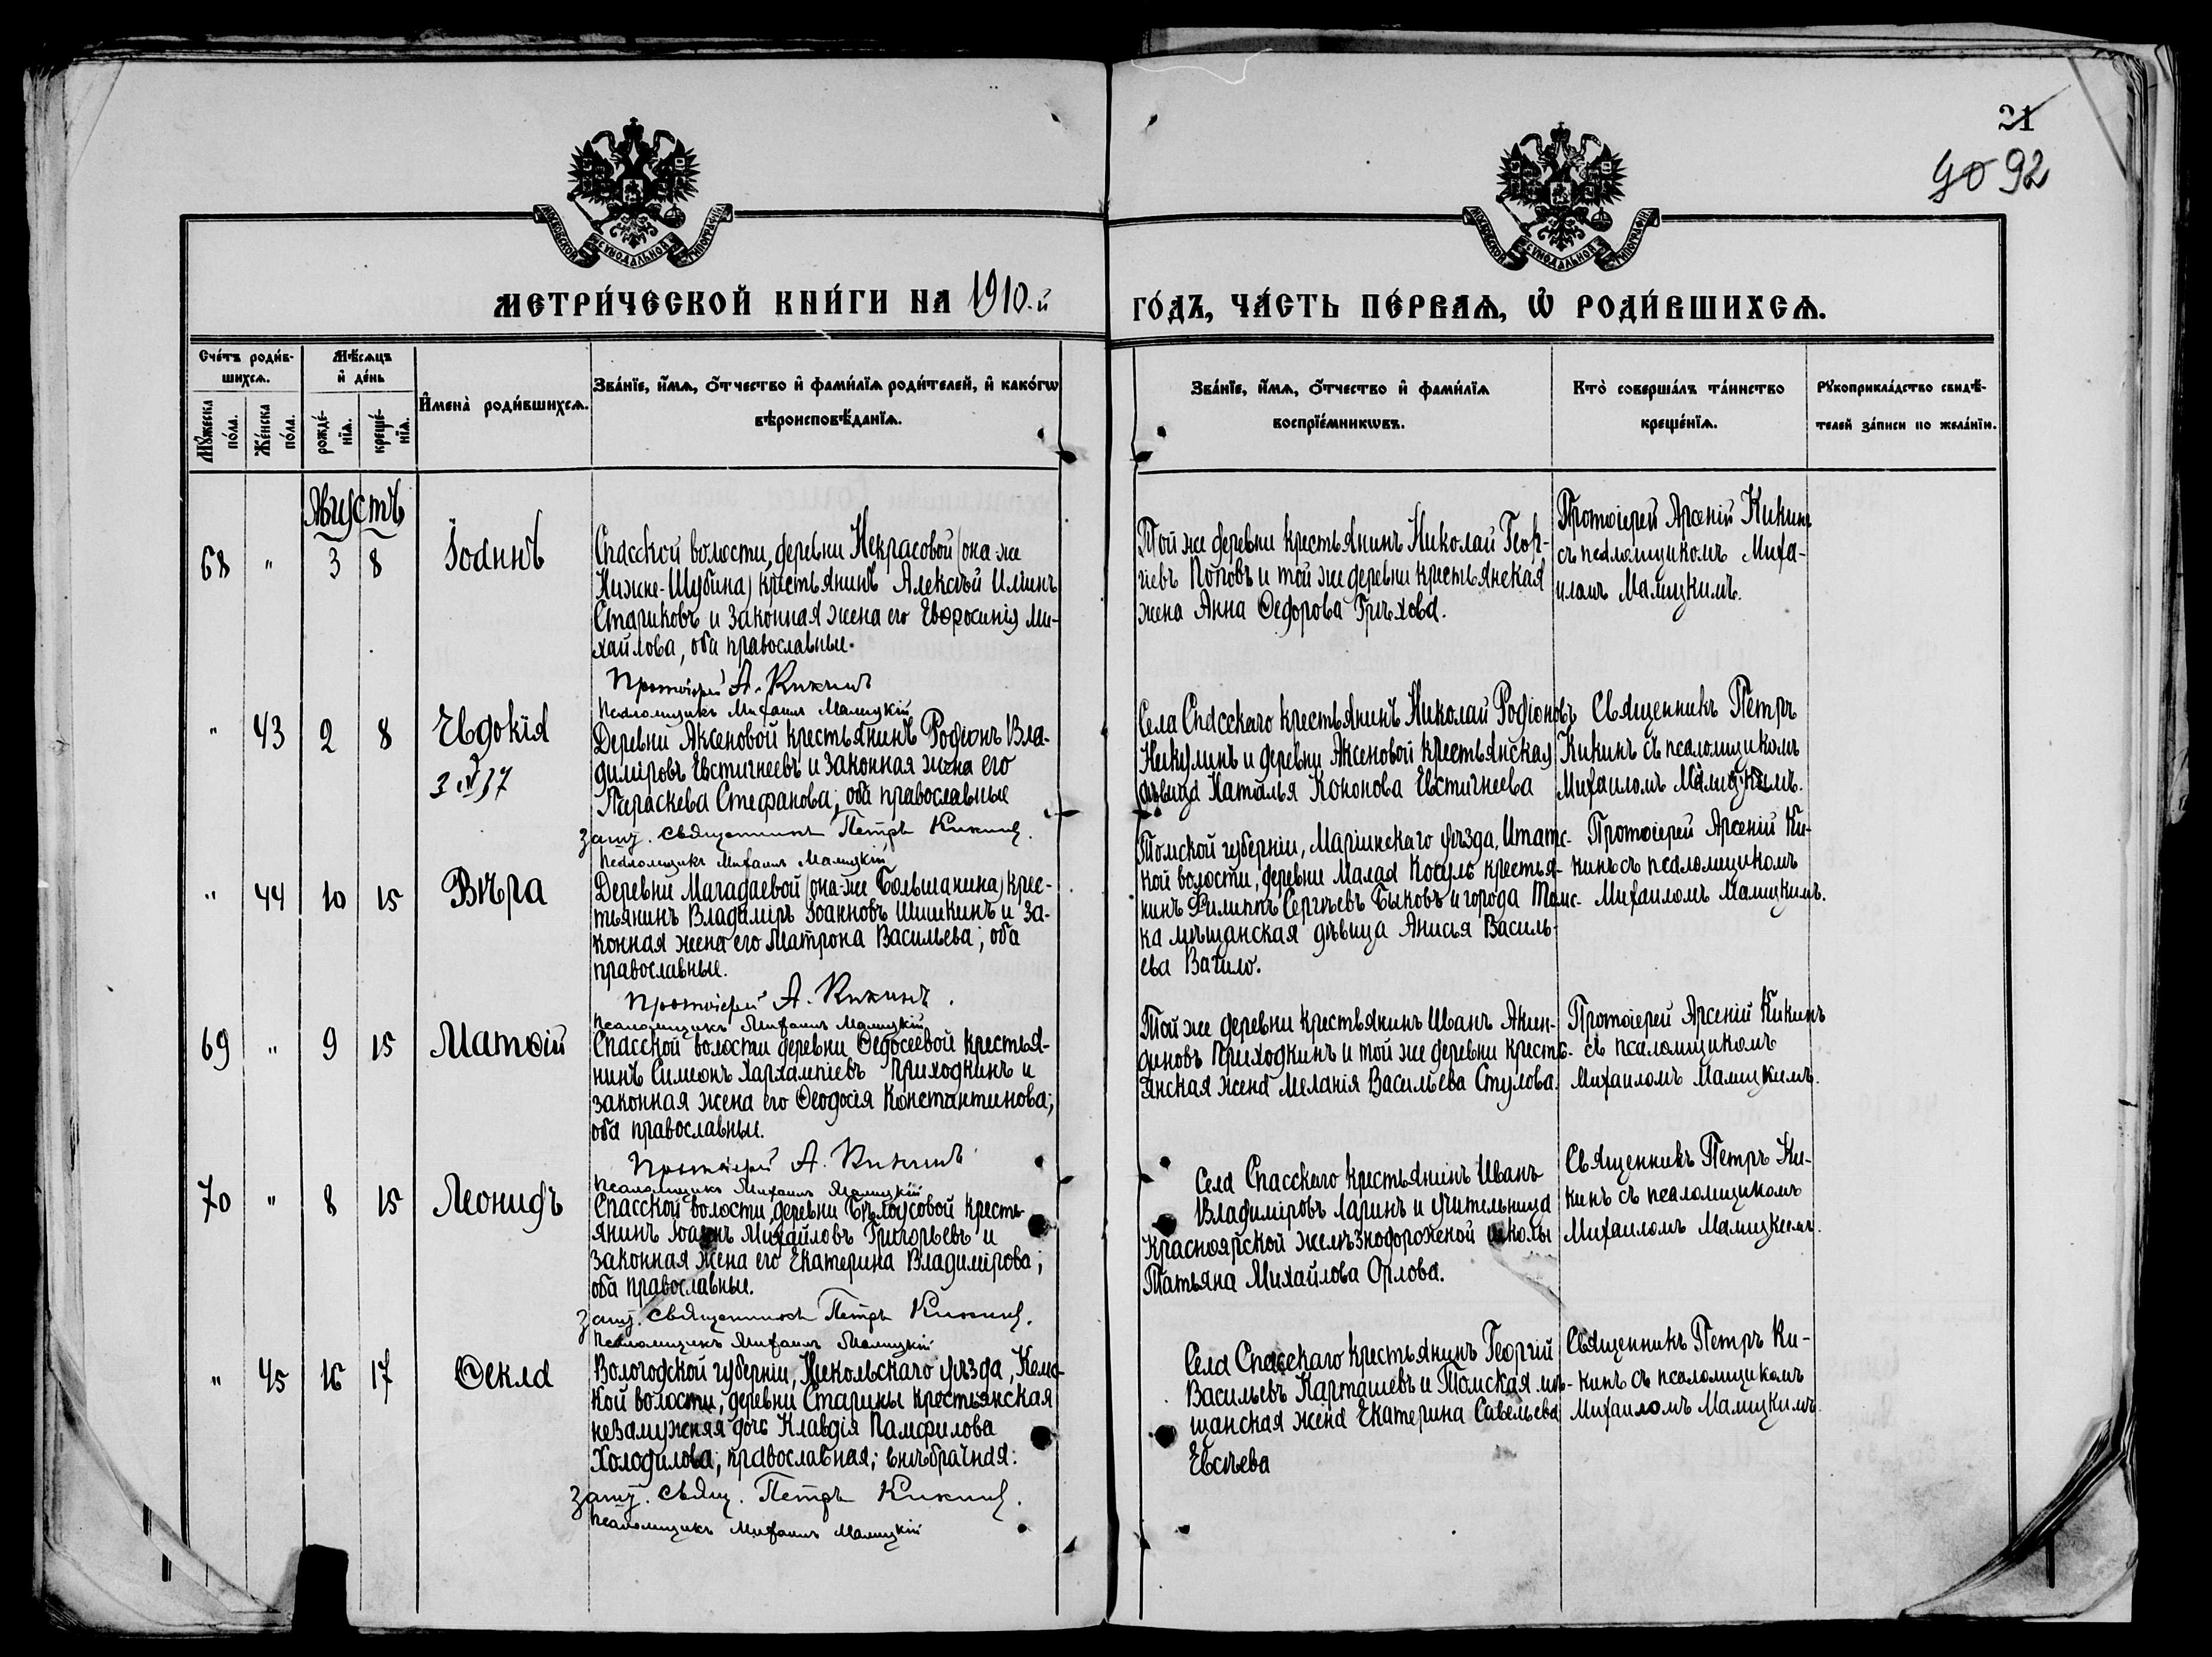 21
90 92
МОСКОВСКОЙ СѴНОДАЛЬНОЙ ТИПОГРАФІИ
МОСКОВСКОЙ СѴНОДАЛЬНОЙ ТИПОГРАФІИ
МЕТРИ́ЧЕСКОЙ КНИ́ГИ НА 1910.й
ГО́ДЪ, ЧА́СТЬ ПЕ́РВАѦ, Ѡ҆ РОДИ́ВШИХСѦ.
Сче́тъ роди́в-
шихсѧ.
Мꙋ́жеска
по́ла.
Же́нска
по́ла.
Мѣ́сѧцъ
и҆ де́нь
рожде́-
нїѧ.
креще́-
нїѧ.
И҆мена̀ роди́вшихсѧ.
Зва́нїе, и҆́мѧ, ѻ҆́тчество и҆ фами́лїѧ роди́телей, и҆ како́гѡ
вѣроисповѣ́данїѧ.
Зва́нїе, и҆́мѧ, ѻ҆́тчество и҆ фами́лїѧ
воспрїе́мникѡвъ.
Кто̀ соверша́лъ та́инство
креще́нїѧ.
Рꙋкоприкла́дство свидѣ́-
телей за́писи по жела́нїю.
Августъ
68 " 3 8 Іоаннъ
Спасской волости, деревни Некрасовой (она-же
Нижне-Шубина) крестьянинъ Алексѣй Илiинъ
Стариковъ и законная жена его Евфросинія Ми-
хайлова, оба православные.
Протоіерей А. Кикинъ
Псаломщикъ Михаилъ Малицкій
Той же деревни крестьянинъ Николай Геор-
гіевъ Поповъ и той же деревни крестьянская
жена Анна Ѳедорова Грѣхова.
Протоіерей Арсеній Кикинъ
съ псаломщикомъ Миха-
иломъ Малицкимъ.
" 43 2 8 Евдокія
Деревни Аксеновой крестьянинъ Родіонъ Вла-
диміровъ Евстигнеевъ и законная жена его
Параскева Стефанова; оба православные
Зашт. Священникъ Петръ Кикинъ.
Псаломщикъ Михаилъ Малицкій
Села Спасскаго крестьянинъ Николай Родіоновъ
Никулинъ и деревни Аксеновой крестьянская
дѣвица Наталья Кононова Евстигнеева
Священникъ Петръ
Кикинъ съ псаломщикомъ
Михаиломъ Малицкимъ.
" 44 10 15 Вѣра
Деревни Магадаевой (она-же Большанина) крес-
тьянинъ Владиміръ Іоанновъ Шишкинъ и за-
конная жена его Матрона Васильева; оба
православные.
Протоіерей А. Кикинъ.
Псаломщикъ Михаилъ Малицкій
Томской губерніи, Маріинскаго уѣзда, Итатс-
кой волости, деревни Малая Косуль крестья-
нинъ Филиппъ Сергѣевъ Быковъ и города Томс-
ка мѣщанская дѣвица Анисья Василь-
ева Вагило.
Протоіерей Арсеній Ки-
кинъ съ псаломщикомъ
Михаиломъ Малицкимъ.
69 " 9 15 Матѳій
Спасской волости деревни Ѳедосеевой крестья-
нинъ Симеонъ Харлампіевъ Приходкинъ и
законная жена его Ѳеодосія Константинова;
оба православные.
Протоіерей А. Кикинъ
Псаломщикъ Михаилъ Малицкій
Той же деревни крестьянинъ Иванъ Акин-
диновъ Приходкинъ и той же деревни кресть-
янская жена Меланія Васильева Стулова.
Протоіерей Арсеній Кикинъ
съ псаломщикомъ
Михаиломъ Малицкимъ.
70 " 8 15 Леонидъ
Спасской волости, деревни Бѣлоусовой кресть-
янинъ Іоаннъ Михайловъ Григорьевъ и
законная жена его Екатерина Владимірова;
оба православные.
Зашт. Священникъ Петръ Кикинъ.
Псаломщикъ Михаилъ Малицкій
Села Спасскаго крестьянинъ Иванъ
Владиміровъ Ларинъ и учительница
Красноярской желѣзнодорожной школы
Татьяна Михайлова Орлова.
Священникъ Петръ Ки-
кинъ съ псаломщикомъ
Михаиломъ Малицкимъ.
" 45 16 17 Ѳекла
Вологодской губерніи, Никольскаго уѣзда,
кой волости, деревни Старины крестьянская
незамужняя дочь Клавдія Памфилова
Холофилова; православная; внѣбрачная.
Зашт. Свящ. Петръ Кикинъ.
Псаломщикъ Михаилъ Малицкій
Села Спасскаго крестьянинъ Георгій
Васильевъ Карташевъ и Томская мѣ-
щанская жена Екатерина Савельева
Евсѣева
Священникъ Петръ Ки-
кинъ съ псаломщикомъ
Михаиломъ Малицкимъ.